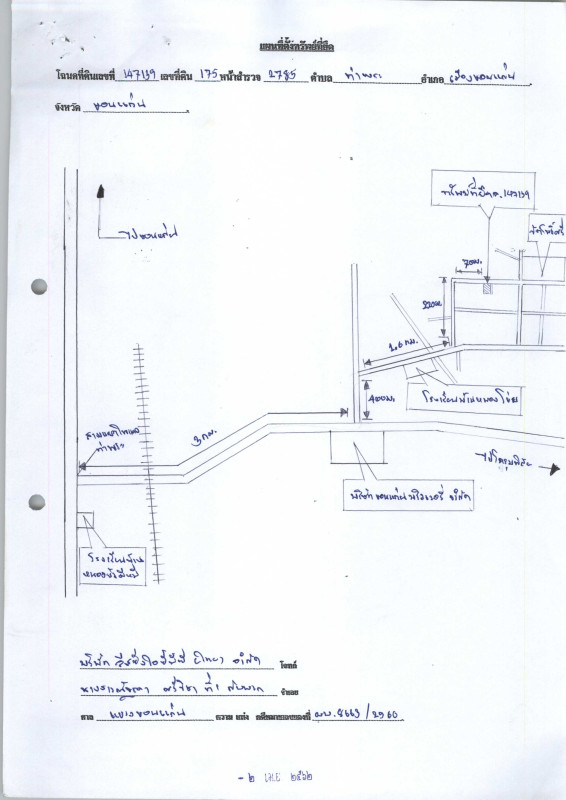 แผนที่ตั้งทรัพย์ที่ยึด
โฉนดที่ดินเลขที่ 147139 เลขที่ดิน 175 หน้าสำรวจ 2785 ตำบล ท่าพระ อำเภอ เมืองขอนแก่น
จังหวัด ขอนแก่น
ทรัพย์ที่ยึด ฉ.147139
ไปขอนแก่น
70ม.
220ม.
1.6 กม.
400ม.
โรงเรียนบ้านหนองโข่ย
3 กม.
ท่าพระ
ไปโกสุมพิสัย
บริษัท ขอนแก่นบริวเวอรี่ จำกัด
โรงเรียนบ้าน
หนองบัวดีหมี
บริษัท จำกัด โจทก์
ที่ 1 กับพวก จำเลย
ศาล แขวงขอนแก่น ความ แพ่ง คดีหมายเลขแดงที่ ผบ.4663/2560
- ๒ เม.ย ๒๕๖๒